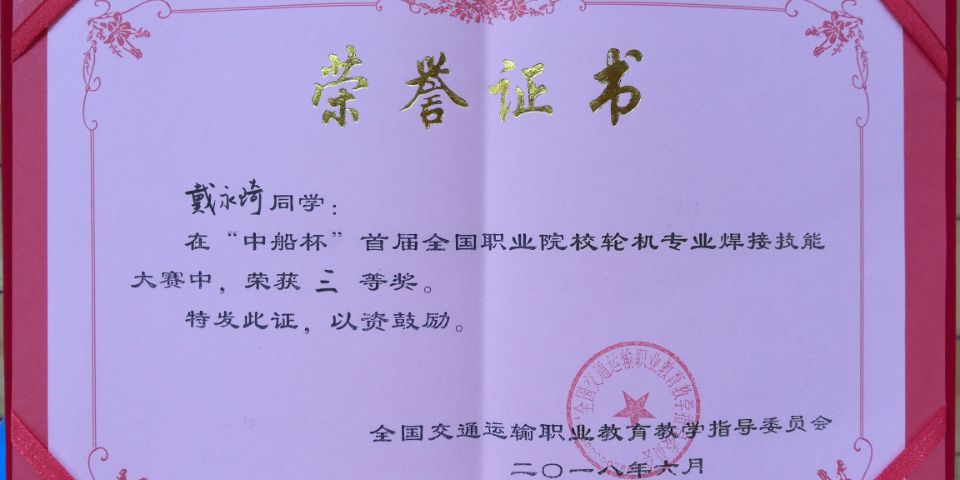 荣誉证书
戴永崎同学：
在“中船杯”首届全国职业院校轮机专业焊接技能
大赛中，荣获 三 等奖。
特发此证，以资鼓励。
全国交通运输职业教育教学指导委员会
二〇一八年六月